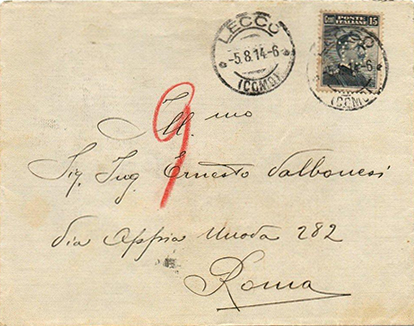 LECCO
-5.8.14-6
(COMO)
POSTE ITALIANE 15
LECCO
(COMO)
9
Ill.mo
Sig. Ing. Ernesto Valbonesi
Via Appia Nuova 282
Roma